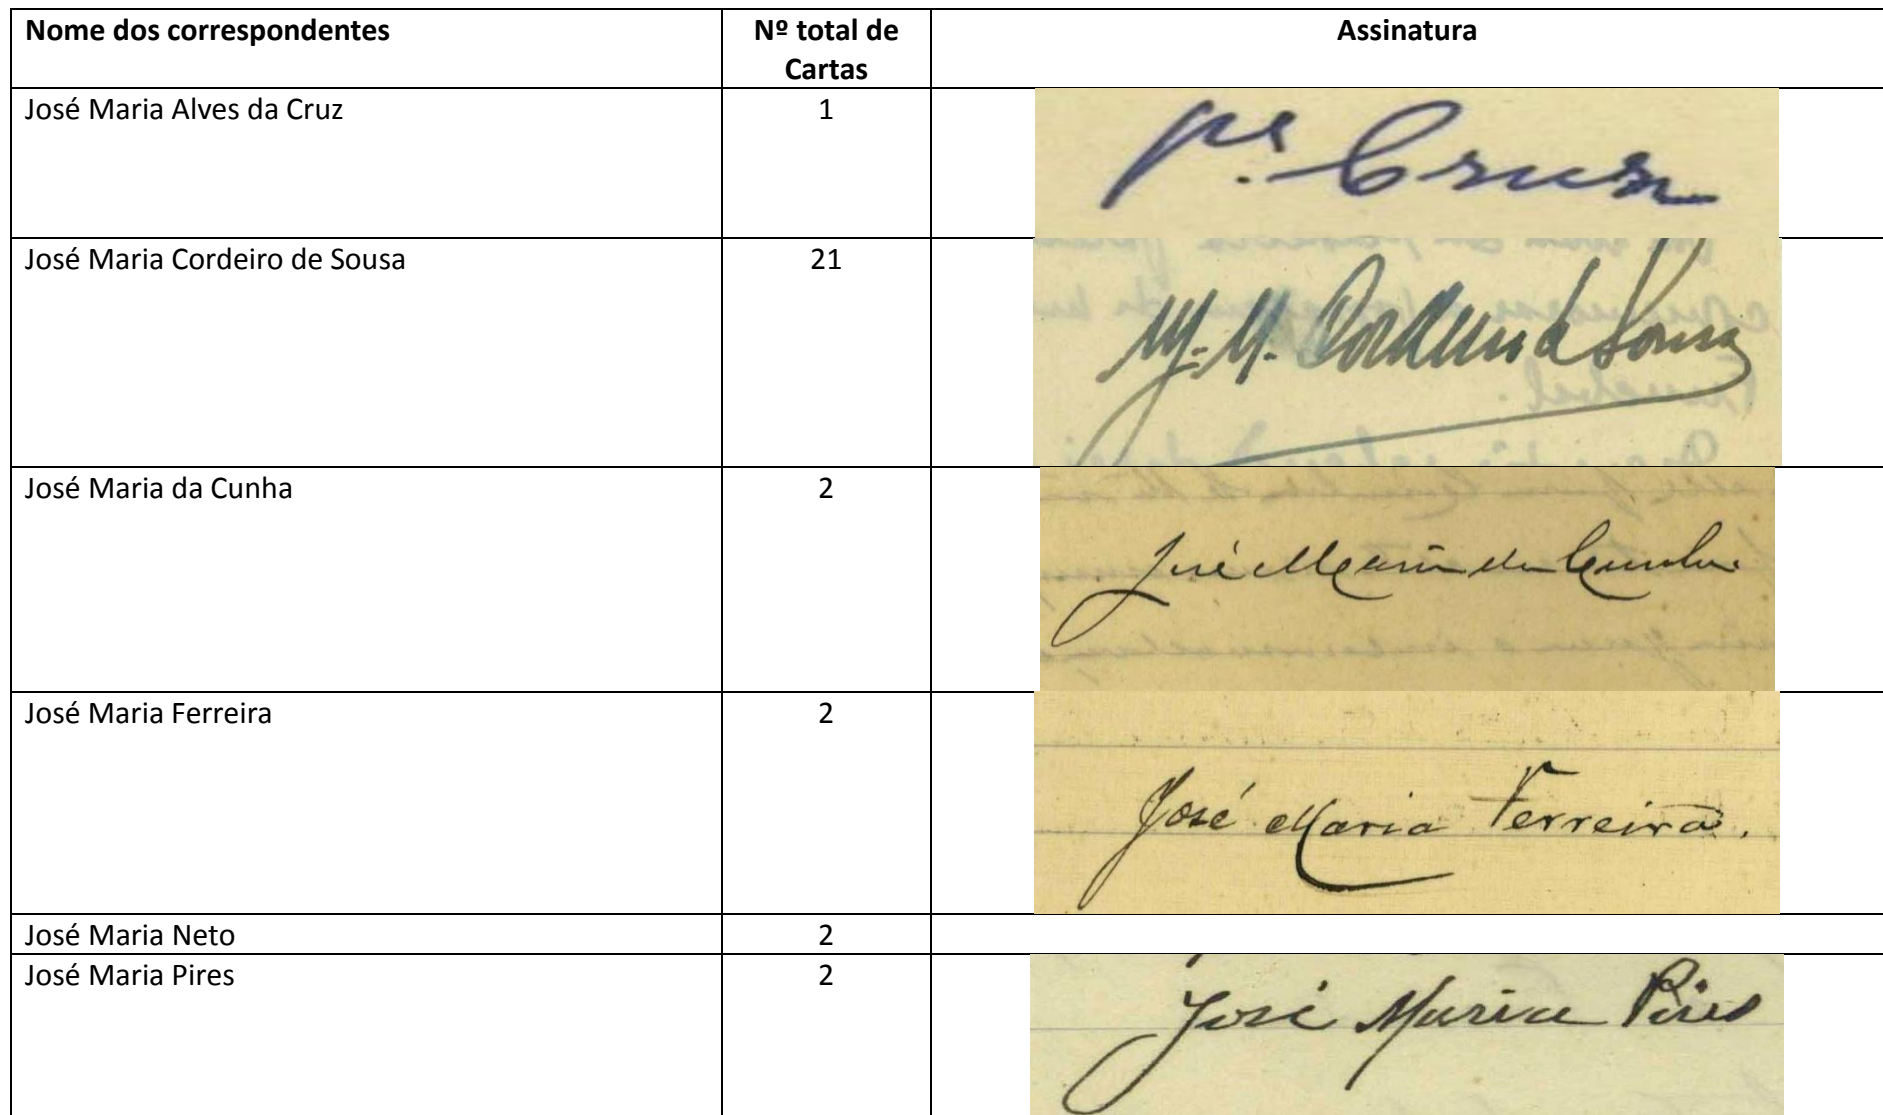 Nome dos correspondentes
Nº total de
Cartas
Assinatura
José Maria Alves da Cruz
1
Cruz
José Maria Cordeiro de Sousa
21
Cordeiro de Sousa
José Maria da Cunha
2
José Maria da Cunha
José Maria Ferreira
2
José Maria Ferreira.
José Maria Neto
2
José Maria Pires
2
José Maria Pires